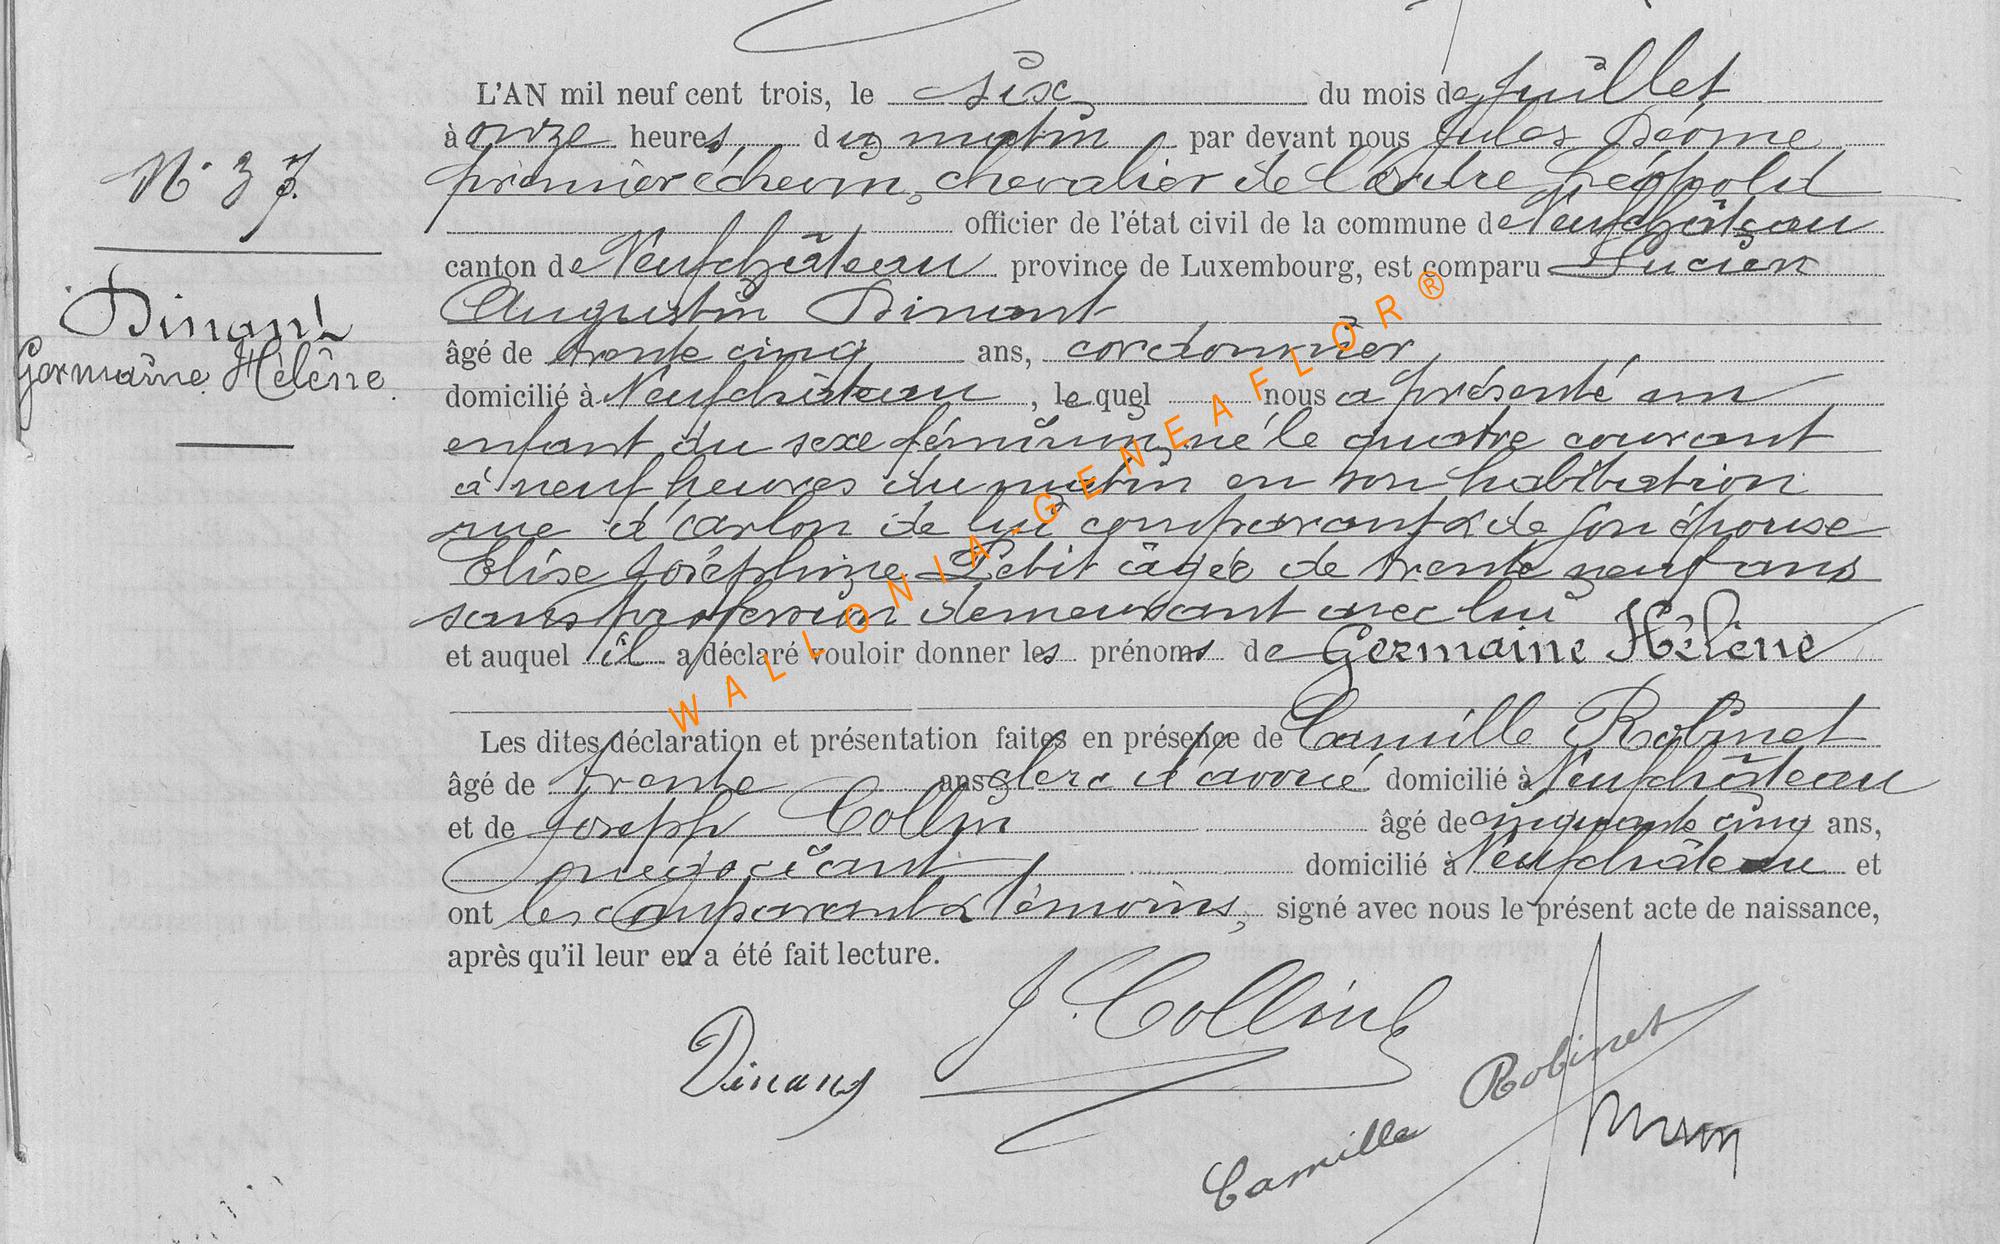 N° 37.
Dinant
Germaine Hélène.
L'AN mil neuf cent trois, le six du mois de Juillet
à onze heures, du matin par devant nous Jules
premier échevin, chevalier de l'Ordre Léopold
officier de l'état civil de la commune de Neufchâteau
canton de Neufchâteau province de Luxembourg, est comparu Lucien
Augustin Dinant
âgé de trente cinq ans, cordonnier,
domicilié à Neufchâteau, le quel nous a présenté un
enfant du sexe féminin, né le quatre courant
à neuf heures du matin en son habitation
rue d'arlon de lui comparant & de son épouse
Elise Joséphine Petit âgée de trente neuf ans
sans profession demeurant avec lui
et auquel il a déclaré vouloir donner les prénoms de Germaine Hélène
Les dites déclaration et présentation faites en présence de Camille Robinet
âgé de trente ans clerc d'avoué domicilié à Neufchâteau
et de Joseph Collin âgé de cinquante cinq ans,
négociant domicilié à Neufchâteau et
ont les comparant & témoins, signé avec nous le présent acte de naissance,
après qu'il leur en a été fait lecture.
Dinant
J. Collin
Camille Robinet
WALLONIA-GENEAFLOR®